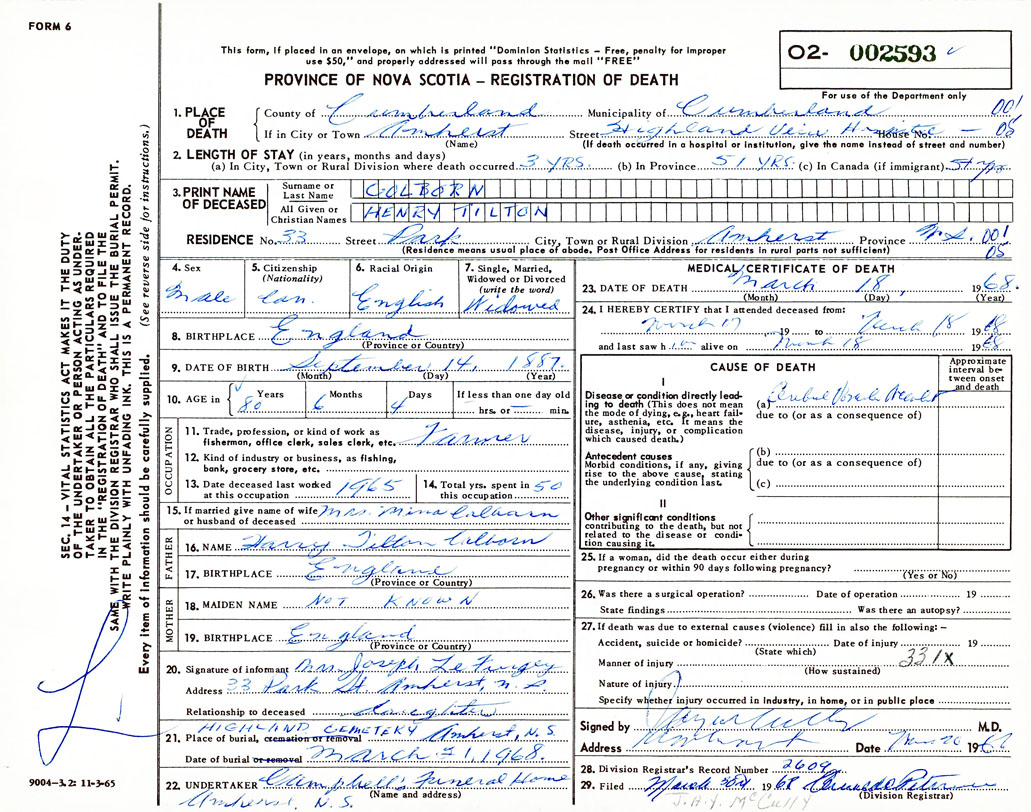 FORM 6
This form, if placed in an envelope, on which is printed "Dominion Statistics – Free, penalty for improper
use $50," and properly addressed will pass through the mail "FREE"
O2- 002593
PROVINCE OF NOVA SCOTIA – REGISTRATION OF DEATH
For use of the Department only
1. PLACE OF DEATH County of Cumberland Municipality of Cumberland 001
If in City or Town Amherst Street Highland View House No. — 05
(Name) (If death occurred in a hospital or institution, give the name instead of street and number)
2. LENGTH OF STAY (in years, months and days)
(a) In City, Town or Rural Division where death occurred 3 YRS. (b) In Province 51 YRS. (c) In Canada (if immigrant) 51 yrs
3. PRINT NAME OF DECEASED Surname or Last Name COLBORN
All Given or Christian Names HENRY TILTON
RESIDENCE No. 33 Street Park City, Town or Rural Division Amherst Province N.S. 001
(Residence means usual place of abode. Post Office Address for residents in rural parts not sufficient) 05
4. Sex Male
5. Citizenship (Nationality) Can.
6. Racial Origin English
7. Single, Married, Widowed or Divorced (write the word) Widowed
8. BIRTHPLACE England
(Province or Country)
9. DATE OF BIRTH September 14, 1887.
(Month) (Day) (Year)
10. AGE in Years 80 Months 6 Days 4 If less than one day old
hrs. or — min.
OCCUPATION
11. Trade, profession, or kind of work as
fisherman, office clerk, sales clerk, etc. Farmer
12. Kind of industry or business, as fishing,
bank, grocery store, etc.
13. Date deceased last worked at this occupation 1965
14. Total yrs. spent in this occupation 50
15. If married give name of wife Mrs. Mina Colborn
or husband of deceased
FATHER
16. NAME Harry Tilton Colborn
17. BIRTHPLACE England
(Province or Country)
MOTHER
18. MAIDEN NAME NOT KNOWN
19. BIRTHPLACE England
(Province or Country)
20. Signature of informant Mrs. Joseph
Address 33 Park St. Amherst, N.S.
Relationship to deceased daughter
HIGHLAND CEMETERY Amherst, N.S.
21. Place of burial, cremation or removal
Date of burial or removal March 1, 1968.
22. UNDERTAKER Campbell's Funeral Home
(Name and address)
Amherst, N.S.
MEDICAL CERTIFICATE OF DEATH
23. DATE OF DEATH March 18, 1968.
(Month) (Day) (Year)
24. I HEREBY CERTIFY that I attended deceased from:
March 17 19 to March 18 1968
and last saw him alive on March 18 1968
CAUSE OF DEATH
Approximate interval between onset and death
I
Disease or condition directly leading to death (This does not mean
the mode of dying, e.g., heart failure, asthenia, etc. It means the
disease, injury, or complication
which caused death.)
(a)
due to (or as a consequence of)
Antecedent causes
Morbid conditions, if any, giving
rise to the above cause, stating
the underlying condition last.
(b)
due to (or as a consequence of)
(c)
II
Other significant conditions
contributing to the death, but not
related to the disease or condition causing it.
25. If a woman, did the death occur either during
pregnancy or within 90 days following pregnancy?
(Yes or No)
26. Was there a surgical operation? Date of operation 19
State findings Was there an autopsy?
27. If death was due to external causes (violence) fill in also the following: –
Accident, suicide or homicide? Date of injury 19
(State which)
Manner of injury 331X
(How sustained)
Nature of injury
Specify whether injury occurred in industry, in home, or in public place
Signed by M.D.
Address Amherst Date Mar 20 1968
28. Division Registrar's Record Number 2609
29. Filed March 1968
(Division Registrar)
J.A.Y. McCully
SEC. 14 – VITAL STATISTICS ACT MAKES IT THE DUTY
OF THE UNDERTAKER OR PERSON ACTING AS UNDER-
TAKER TO OBTAIN ALL THE PARTICULARS REQUIRED
IN THE "REGISTRATION OF DEATH" AND TO FILE THE
SAME WITH THE DIVISION REGISTRAR WHO SHALL ISSUE THE BURIAL PERMIT.
WRITE PLAINLY WITH UNFADING INK. THIS IS A PERMANENT RECORD.
Every item of information should be carefully supplied. (See reverse side for instructions.)
9004–3.2: 11-3-65